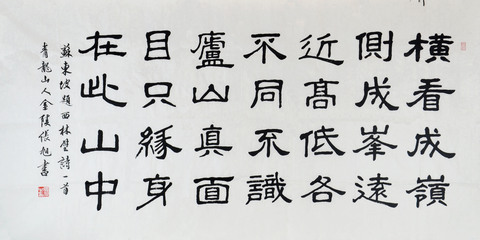 橫看成嶺
側成峯遠
近高低各
不同不識
廬山真面
目只緣身
在此山中
蘇東坡題西林壁詩一首
青龍山人金陵張旭書